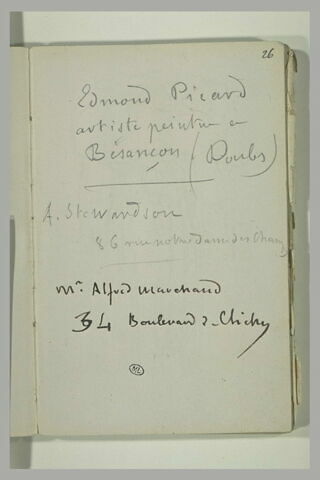 26
Edmond Picard
artiste peintre a
Besançon (Doubs)
A. Stewardson
86 rue notre dame des Champ
Mr. Alfred Marchand
34 Boulevard de Clichy
ML